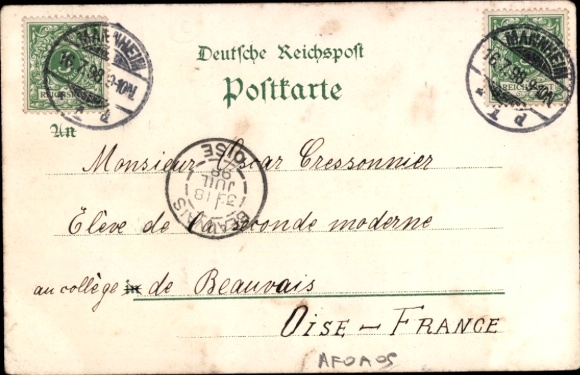 MANNHEIM
16.7.98.9-10N.
P. T. *
REICHSPOST
Deutsche Reichspost
Postkarte
MANNHEIM
16.7.98.9-10N.
P. T. *
REICHSPOST
An
Monsieur Oscar Cressonnier
BEAUVAIS
18
JUIL
98
OISE
Elève de Seconde moderne
au collège de Beauvais
OISE – FRANCE
AFOAOS